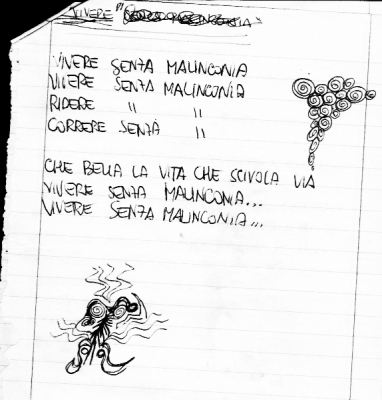 VIVERE DI
VIVERE SENZA MALINCONIA
VIVERE SENZA MALINCONIA
RIDERE " "
CORRERE SENZA "
CHE BELLA LA VITA CHE SCIVOLA VIA
VIVERE SENZA MALINCONIA...
VIVERE SENZA MALINCONIA...